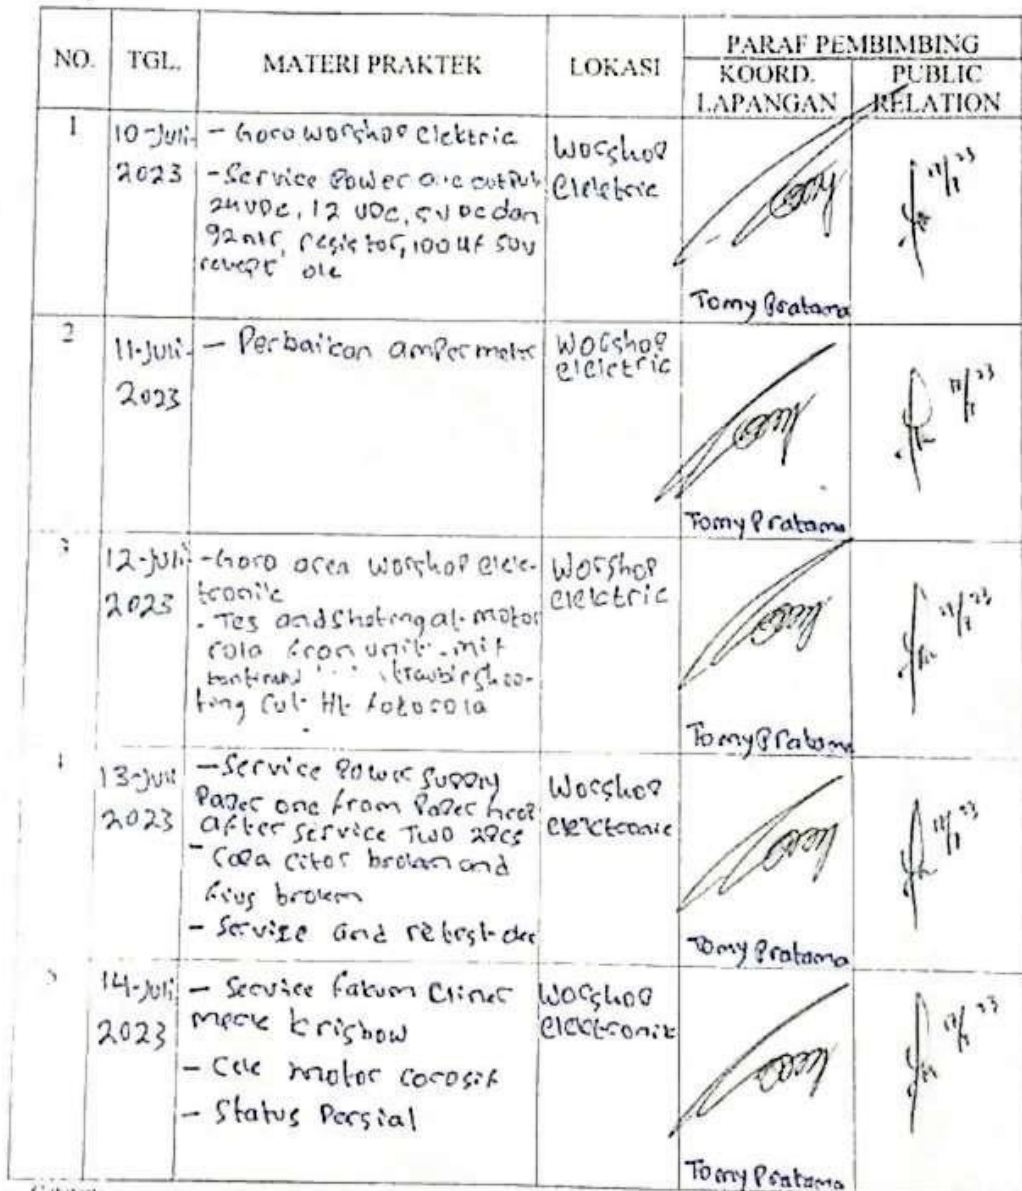 NO. TGL. MATERI PRAKTEK LOKASI PARAF PEMBIMBING
KOORD. LAPANGAN PUBLIC RELATION
1 10-Juli- 2023
- Goro worshop elektric
- Service Power one output
24 VDC, 12 VDC, 5 VDC dan
resistor, 100 uf 50v
Worshop
Elelktric
Tomy Pratama
17/7 23
2 11-Juli- 2023
- Perbaikan ampermeter
Worshop
elelctric
Tomy Pratama
17/7 23
3 12-Juli- 2023
- Goro area worshop elek-
tronik
- Tes and
rola from unit
Worshop
elektric
Tomy Pratama
17/7 23
4 13-Juli 2023
- Service Power Supply
Paper one from Paper
after service Two 2Pcs
- Capa citor broken and
fius broken
- Service and
Worshop
elektronic
Tomy Pratama
17/7 23
5 14-Juli 2023
- Service fakum Cliner
merk krisbow
- Cek motor corosif
- Status Persial
Worshop
elektronik
Tomy Pratama
17/7 23